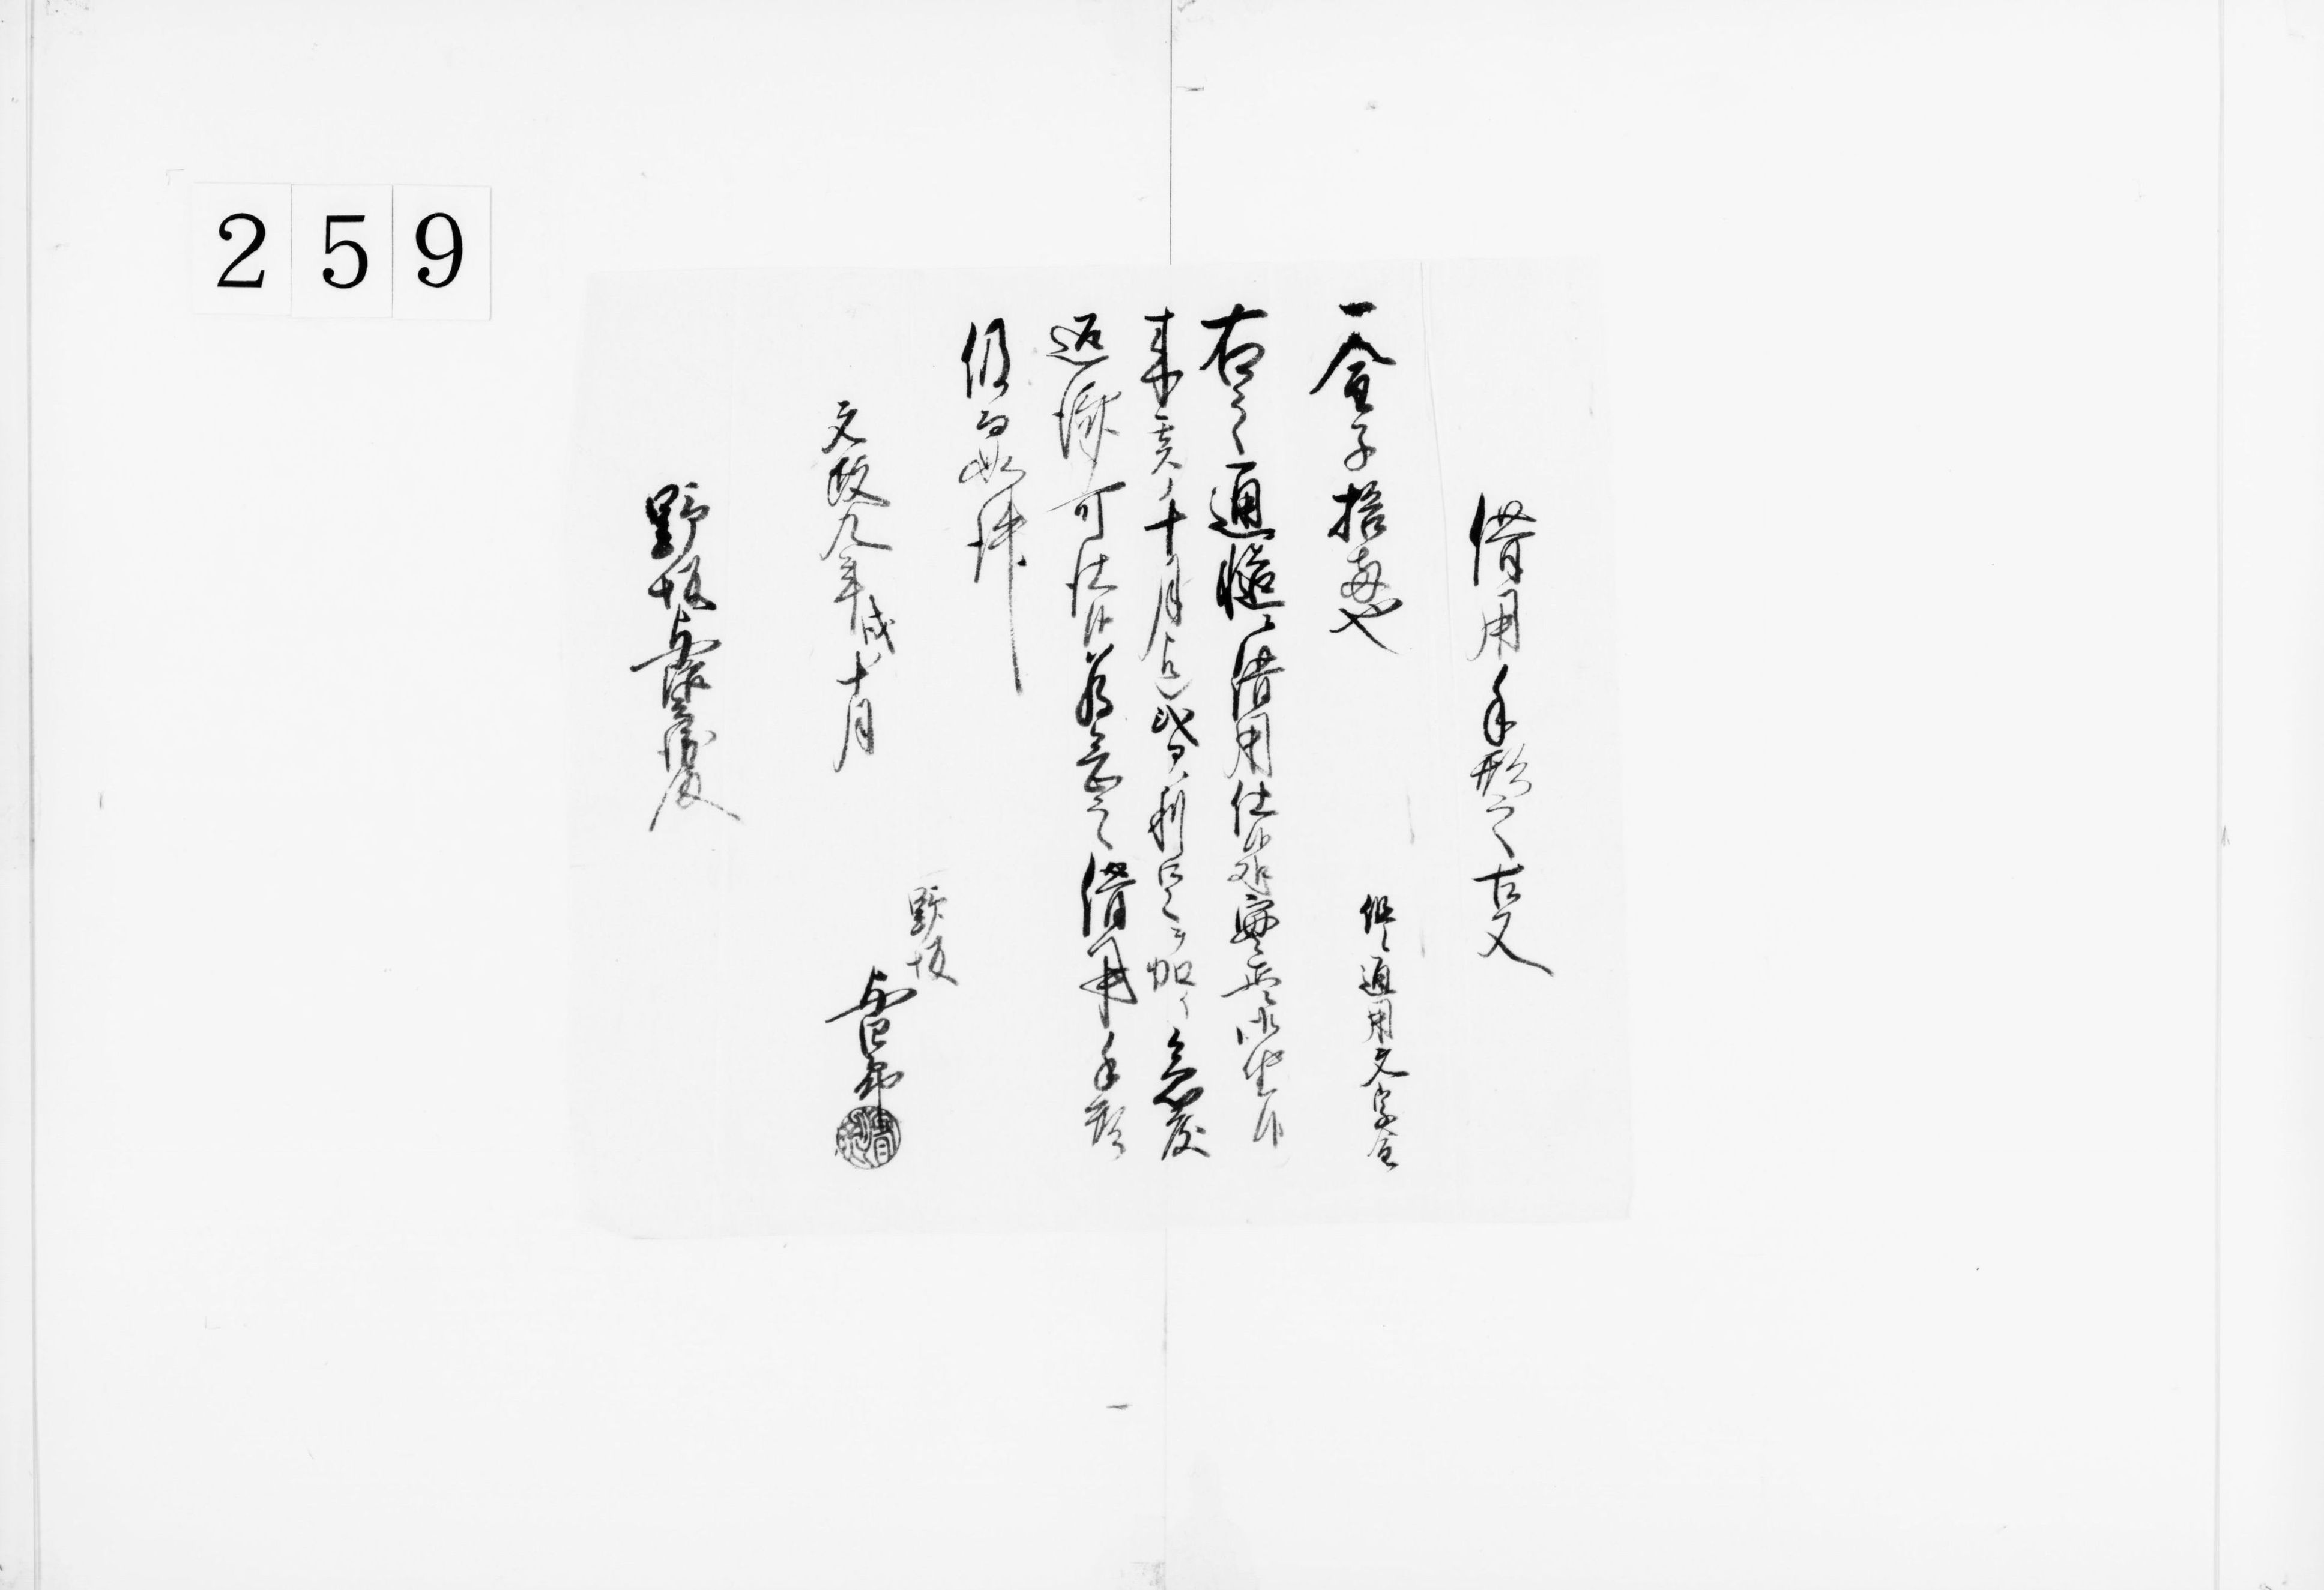 259
借用手形之古文
一金子拾両也
但シ通用文字金
右之通慥ニ借用仕候処実正ニ御坐候
来亥ノ十月迄 利足ヲ加ヘ急度
返済可仕候為念之借用手形
仍而如件
文政九年戌十月
野坂
与四郎
野坂与 殿